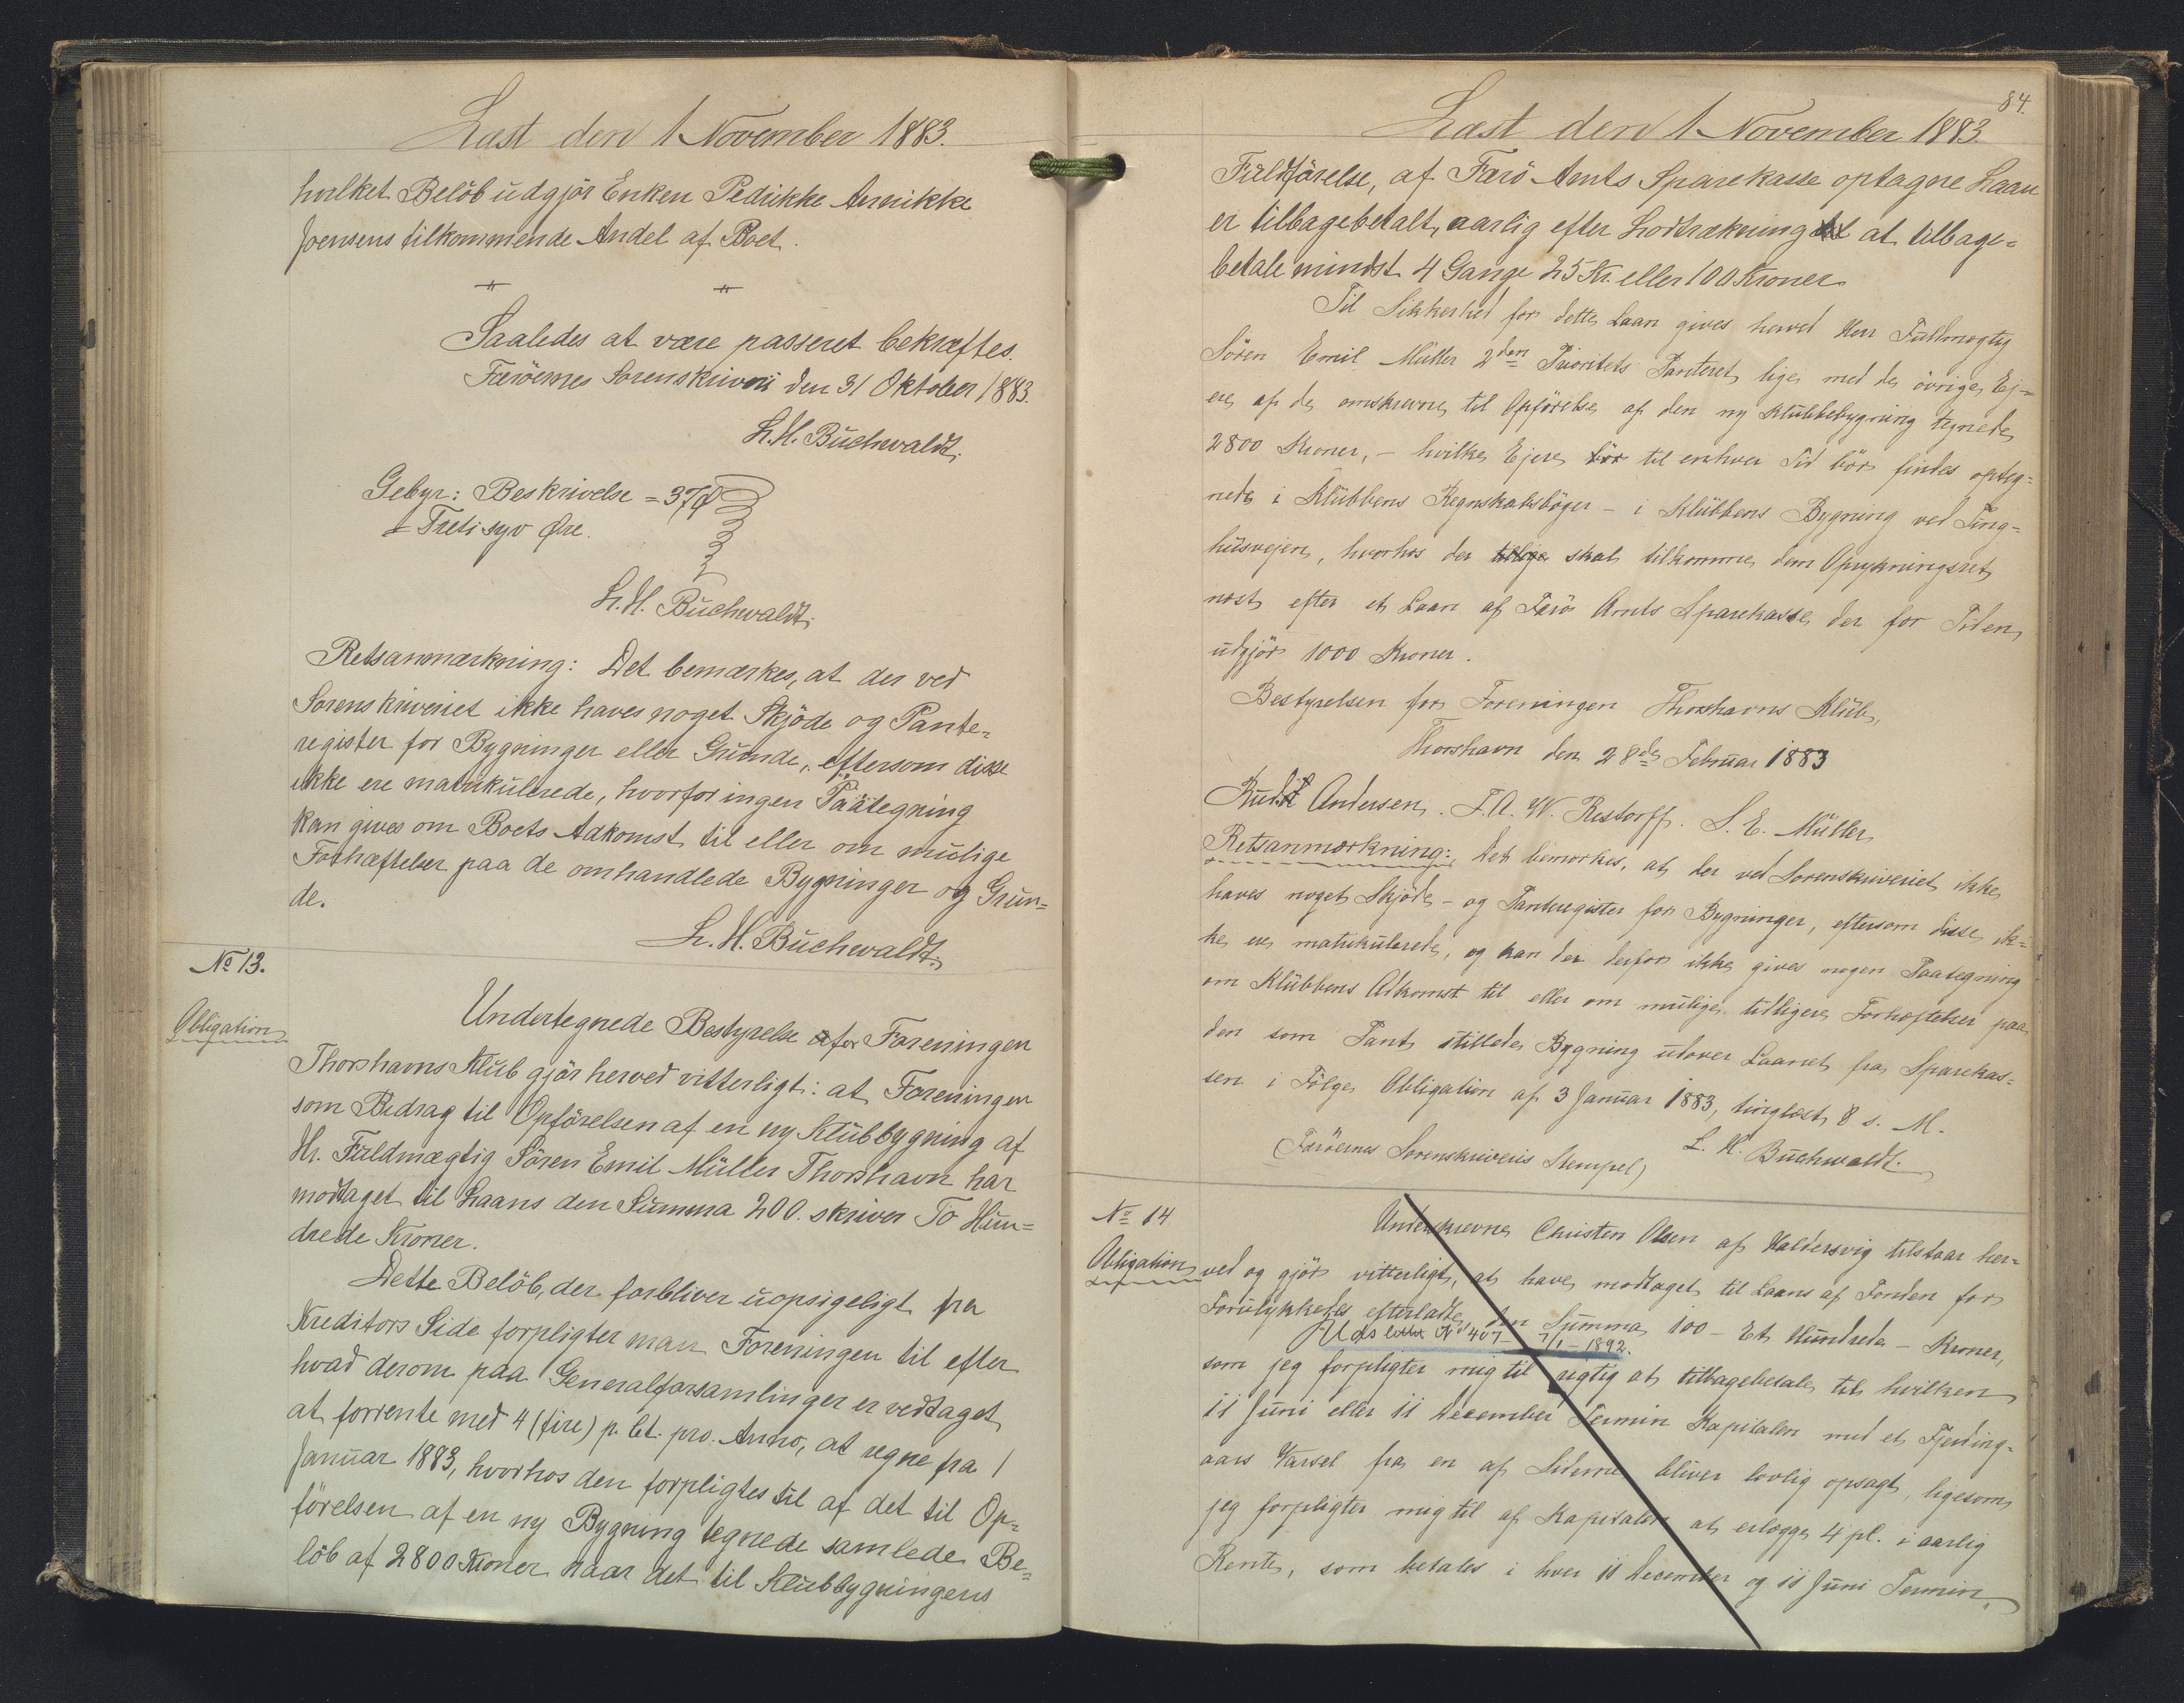 Læst den 1 November 1883.
hvilket Beløb udgjør Enken Pedrikke Annikke
Joensens tilkommende Andel af Boet.
Saaledes at være passeret bekræftes.
Færöernes Sorenskriveri den 31 Oktober 1883.
L. H. Buchwaldt.
Gebyr: Beskrivelse = 37 Ø
= Treti syv Øre.
L. H. Buchwaldt.
Retsanmærkning: Det bemærkes, at der ved
Sorenskriveriet ikke haves noget Skjöde og Pante-
register for Bygninger eller Grunde, eftersom disse
ikke ere matrikulerede, hvorfor ingen Paategning
kan gives om Boets Adkomst til eller om mulige
Forhæftelser paa de omhandlede Bygninger og Grun=
de.
L. H. Buchwaldt.
№ 13.
Obligation
Undertegnede Bestyrelse for Foreningen
Thorshavns Klub gjör herved vitterligt: at Foreningen
som Bidrag til Opförelsen af en ny Klubbygning af
Hr. Fuldmægtig Sören Emil Müller Thorshavn har
modtaget til Laans den Summa 200. skriver To Hun=
drede Kroner.
Dette Belöb, der forbliver uopsigeligt fra
Kreditors Side forpligter man Foreningen til efter
hvad derom paa Generalforsamlinger er vedtaget
at forrente med 4 (fire) p. Ct. pro. Anno, at regne fra 1
Januar 1883, hvorhos den forpligtes til af det til Op=
förelsen af en ny Bygning tegnede samlede Be=
löb af 2800 Kroner naar det til Klubbygningens
84.
Læst den 1 November 1883.
Fuldförelse, af Færö Amts Sparekasse optagne Laan
er tilbagebetalt, aarlig efter Lodtrækning at tilbage=
betale mindst 4 Gange 25 Kr. eller 100 Kroner.
Til Sikkerhed for dette Laan gives herved Herr Fuldmægtig
Sören Emil Müller 2den Prioritets Panteret lige med de övrige Ej=
ere af de omskrevne til Opförelse af den ny Klubbebygning tegnede
2800 Kroner, – hvilke Ejere bör til enhver Tid bör findes opteg=
nede i Klubbens Regnskabsböger – i Klubbens Bygning ved Ting=
husvejen, hvorhos der tillige skal tilkomme dem Oprykningsret
næst efter et Laan af Færö Amts Sparekasse, der for Tiden
udgjör 1000 Kroner.
Bestyrelsen for Foreningen Thorshavns Klub,
Thorshavn den 28de Februar 1883
Andersen. F. A. W. Restorff. S. E. Müller
Retsanmærkning: Det bemærkes, at der ved Sorenskriveriet ikke
haves noget Skjöde – og Panteregister for Bygninger, eftersom disse ik=
ke ere matrikulerede, og kan der derfor ikke gives nogen Paategning
om Klubbens Adkomst til eller om mulige tidligere Forhæftelser paa
den som Pant stillede Bygning udover Laanet fra Sparekas=
sen i Fölge Obligation af 3 Januar 1883, tinglæst 8 s. M.
L. H. Buchwaldt.
(Færöernes Sorenskriveris Stempel)
№ 14
Obligation
Underskrevne Christen Olsen af Haldersvig tilstaar her=
ved og gjör vitterligt, at have modtaget til Laans af Fonden for
Forulykkedes efterladte, den Summa 100 – Et Hundrede – Kroner,
Uds № 407 – 7/1 – 1892.
som jeg forpligter mig til rigtig at tilbagebetale til hvilken
11 Juni eller 11 December Termin Kapitalen med et Fjerding=
aars Varsel fra en af Siderne bliver lovlig opsagt, ligesom
jeg forpligter mig til af Kapitalen at erlægge 4 pC. i aarlig
Rente, som betales i hver 11 December og 11 Juni Termin,